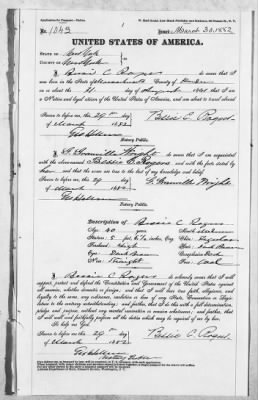 No. 1343 Issued March 30, 1882
UNITED STATES OF AMERICA.
STATE OF New York
COUNTY OF New York
I, Bessie C. Rogers do swear that I was
born in the State of Massachusetts County of
on or about the 21 day of August 1841 that I am
a Native and loyal citizen of the United States of America, and am about to travel abroad.
Sworn to before me this 29th day
of March 1882
Bessie C. Rogers
Notary Public.
I, G. Granville Wright do swear that I am acquainted
with the above-named Bessie C. Rogers and with the facts stated by
her and that the same are true to the best of my knowledge and belief.
Sworn to before me this 29 day
of March 1882
G. Granville Wright
Notary Public.
Description of Bessie C. Rogers
Age: 40 years
Stature: 5 feet inches, Eng.
Forehead: High
Eyes: Dark Brown
Nose: Straight
Mouth: Medium
Chin:
Hair: Dark Brown
Complexion:
Face: Oval
I, Bessie C. Rogers do solemnly swear that I will
support, protect and defend the Constitution and Government of the United States against
all enemies, whether domestic or foreign; and that I will bear true faith, allegiance, and
loyalty to the same, any ordinance, resolution or law of any State, Convention or Legis-
lature to the contrary notwithstanding; and further, that I do this with a full determination,
pledge, and purpose, without any mental reservation or evasion whatsoever; and further, that
I will well and faithfully perform all the duties which may be required of me by law.
So help me God.
Sworn to before me this 29 day
of March 1882
Bessie C. Rogers
Notary Public